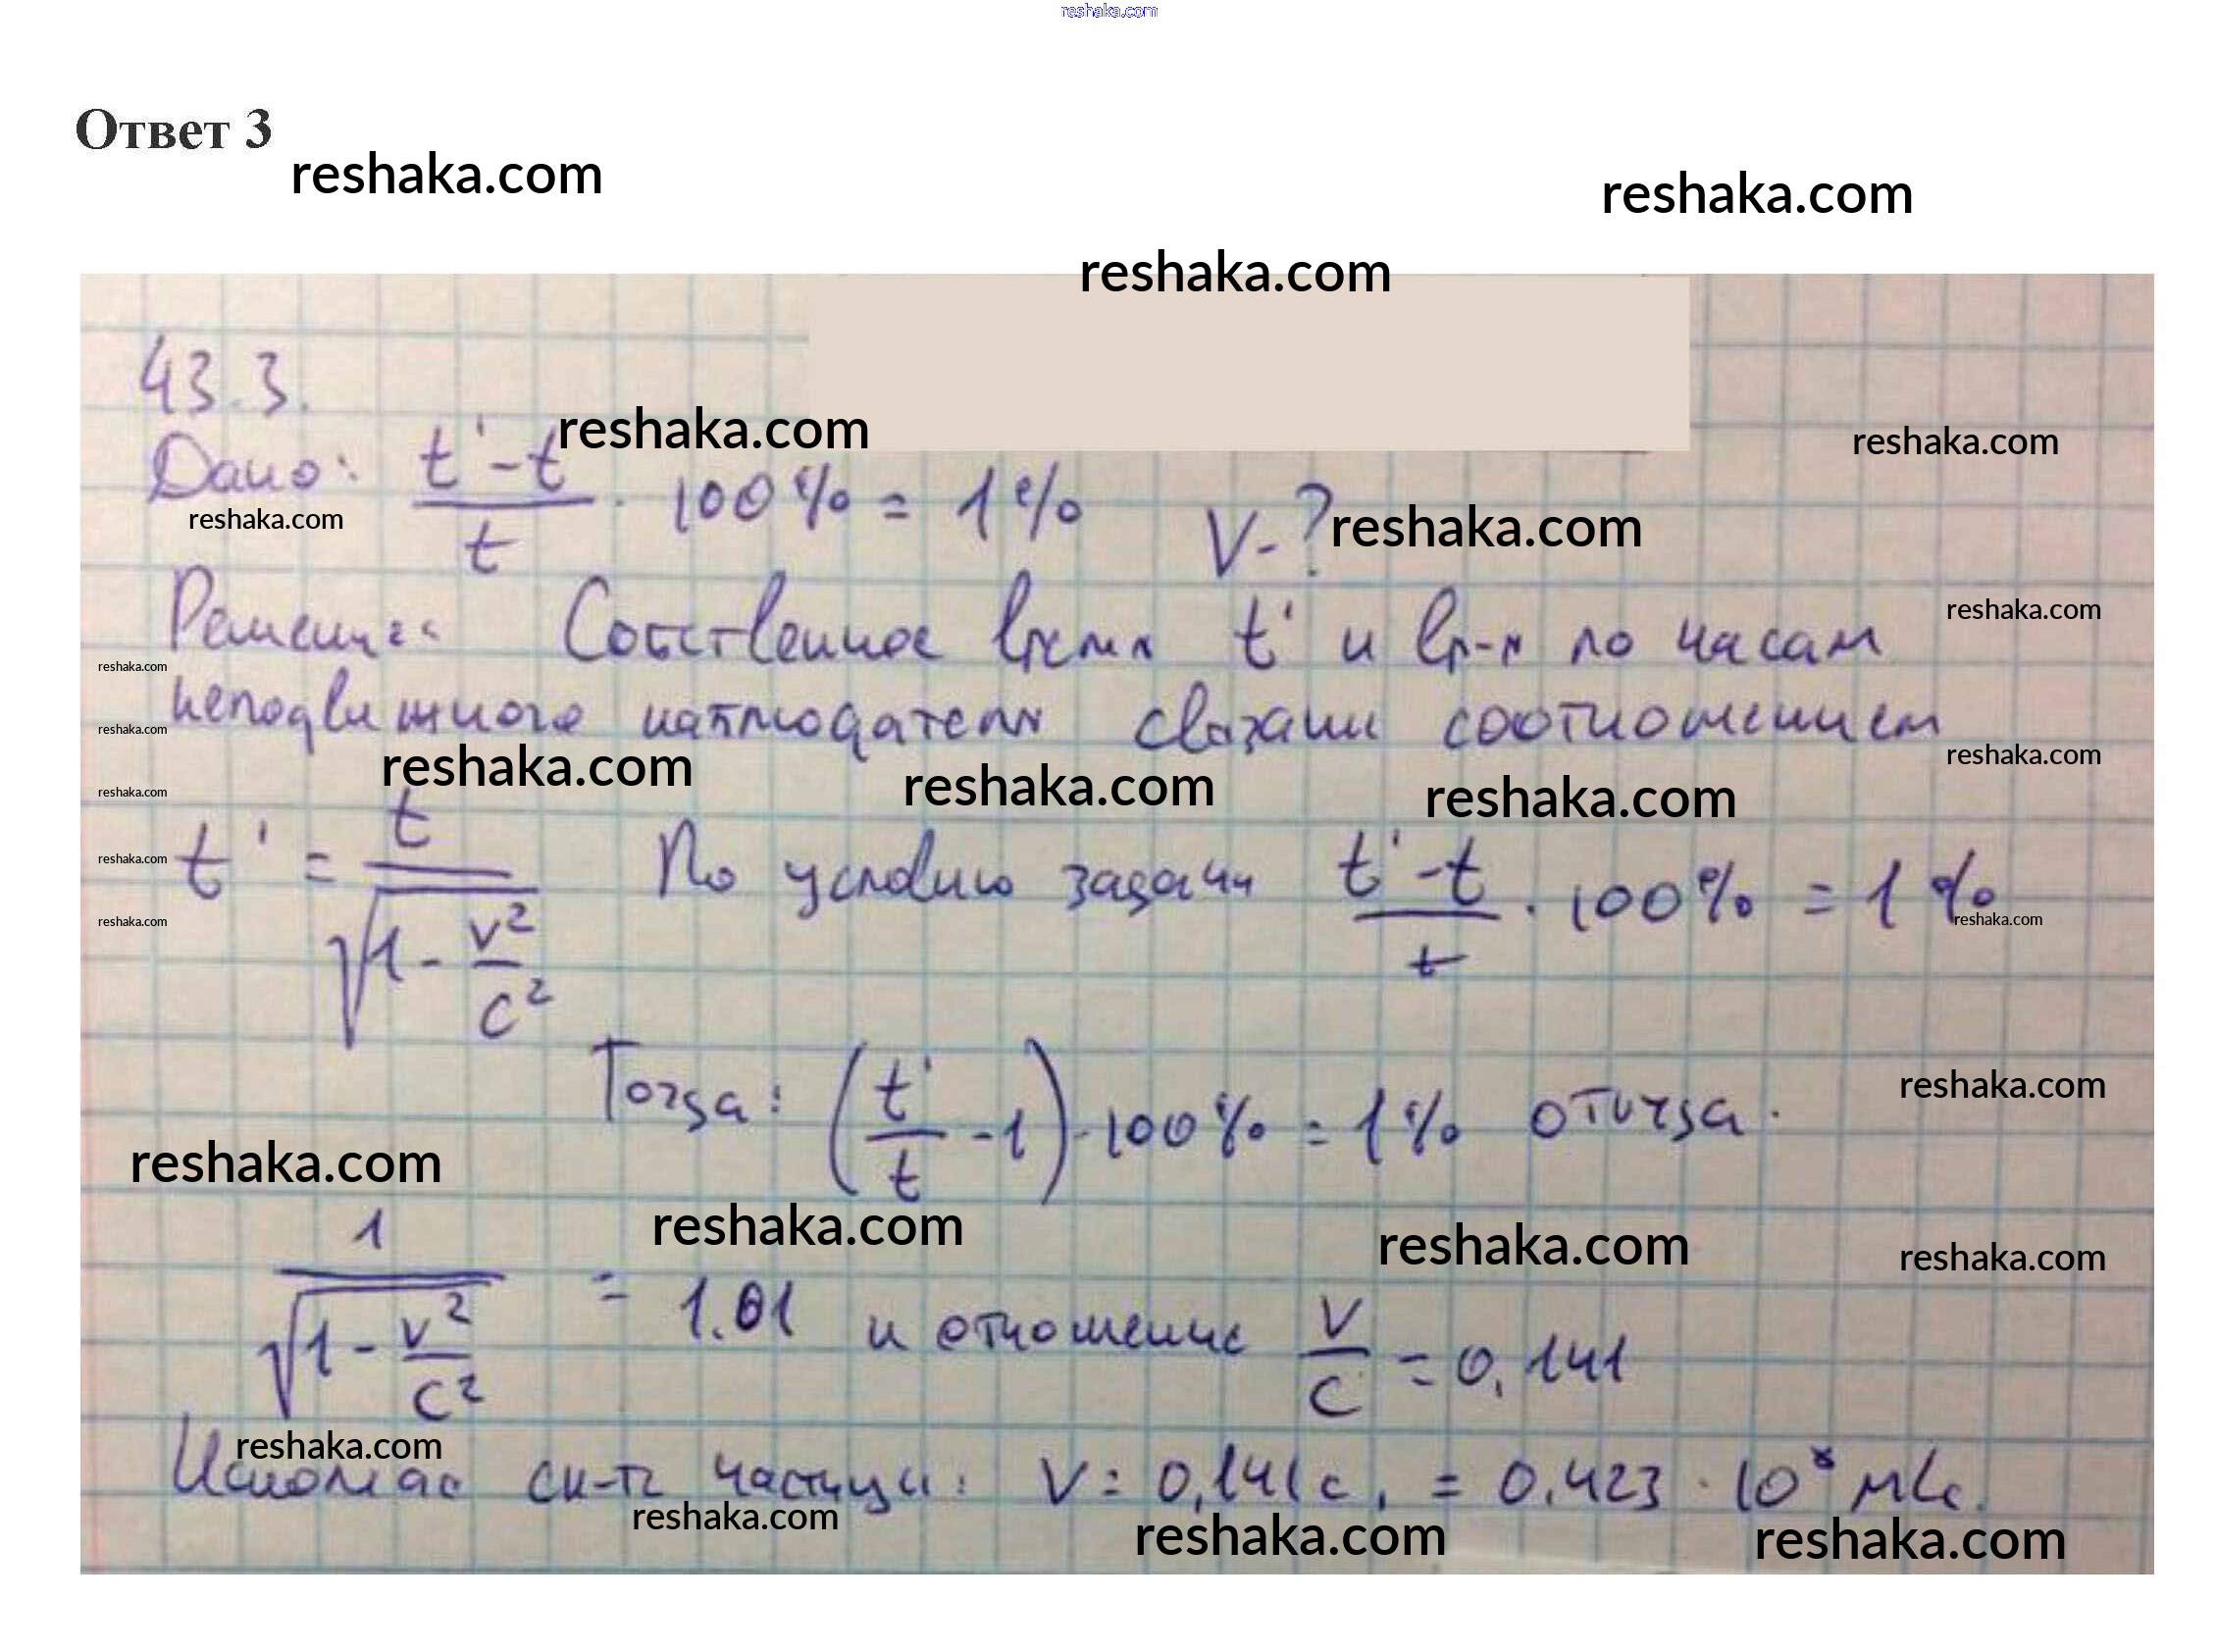 reshaka.com
Ответ 3
reshaka.com
reshaka.com
reshaka.com
43.3.
reshaka.com
reshaka.com
Дано: (t' - t)/t · 100% = 1% V - ?
reshaka.com
reshaka.com
Решение: Собственное время t' и вр-я по часам
reshaka.com
reshaka.com
неподвижного наблюдателя связаны соотношением
reshaka.com
reshaka.com
reshaka.com
reshaka.com
reshaka.com
reshaka.com
t' = t/√(1 - v²/c²) По условию задачи (t' - t)/t · 100% = 1%
reshaka.com
reshaka.com
reshaka.com
Тогда: (t'/t - 1) · 100% = 1% откуда
reshaka.com
reshaka.com
reshaka.com
reshaka.com
reshaka.com
1/√(1 - v²/c²) = 1.01 и отношение V/C = 0,141
reshaka.com
Искомая ск-ть частицы: V = 0,141c, = 0.423 · 10⁸ м/с.
reshaka.com
reshaka.com
reshaka.com